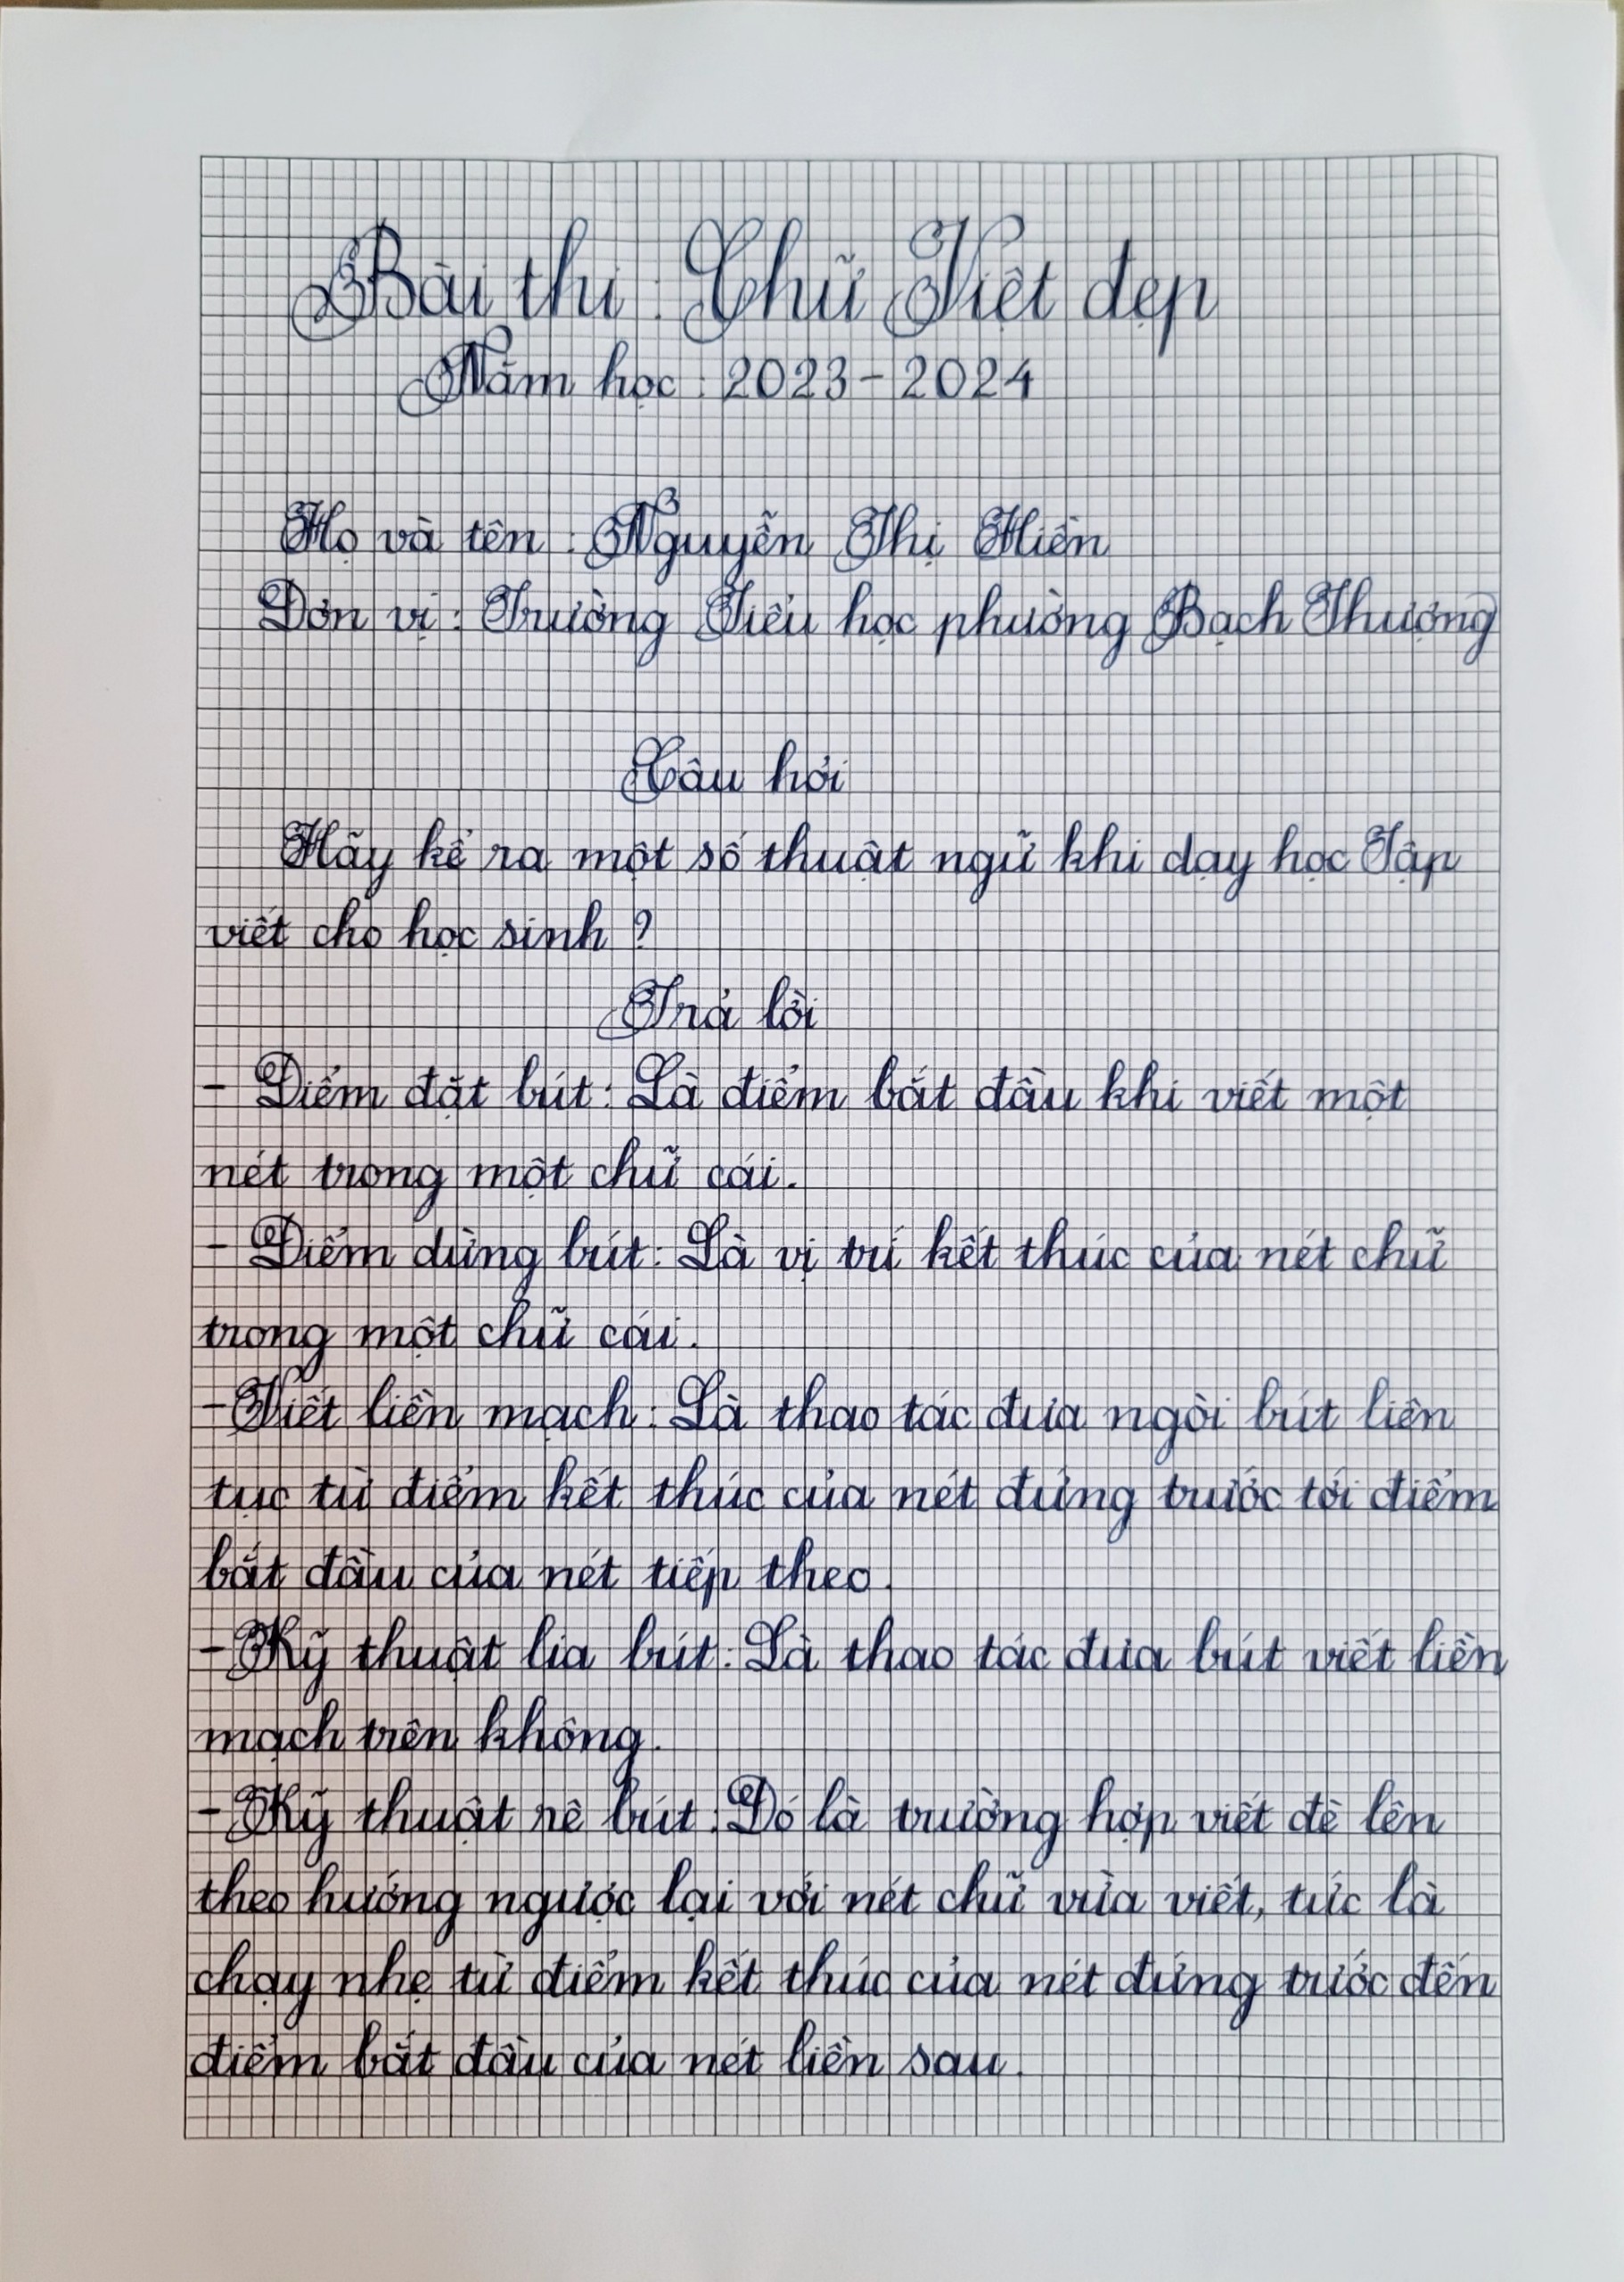 Bài thi : Chữ Việt đẹp
Năm học : 2023 - 2024
Họ và tên : Nguyễn Thị Hiền
Đơn vị : Trường Tiểu học phường Bạch Thượng
Câu hỏi
Hãy kể ra một số thuật ngữ khi dạy học Tập
viết cho học sinh ?
Trả lời
- Điểm đặt bút : Là điểm bắt đầu khi viết một
nét trong một chữ cái.
- Điểm dừng bút : Là vị trí kết thúc của nét chữ
trong một chữ cái.
- Viết liền mạch : Là thao tác đưa ngòi bút liên
tục từ điểm kết thúc của nét đứng trước tới điểm
bắt đầu của nét tiếp theo.
- Kỹ thuật lia bút : Là thao tác đưa bút viết liền
mạch trên không.
- Kỹ thuật rê bút : Đó là trường hợp viết đè lên
theo hướng ngược lại với nét chữ vừa viết, tức là
chạy nhẹ từ điểm kết thúc của nét đứng trước đến
điểm bắt đầu của nét liền sau.